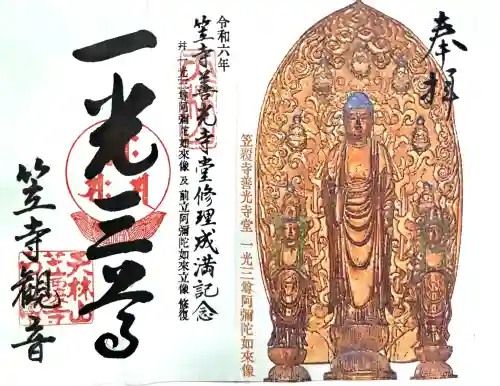 奉拝
笠覆寺善光寺堂 一光三尊阿彌陀如來像
令和六年
笠寺善光寺堂修理成満記念
并 一光三尊阿彌陀如來像 及 前立阿彌陀如來立像 修復
一光三尊
笠寺觀音